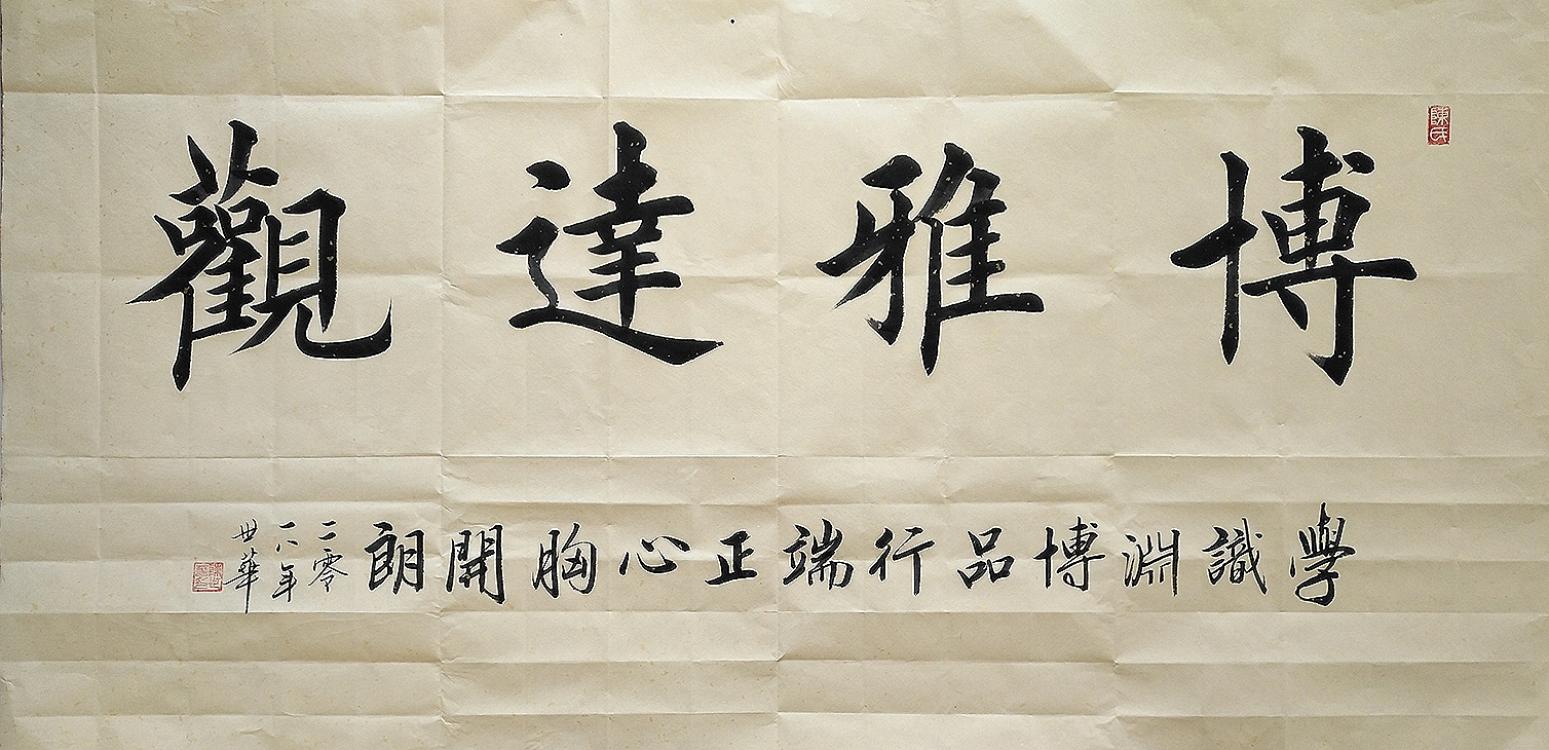 陳氏
博雅達觀
學識淵博品行端正心胸開朗
二零
一八年
世華